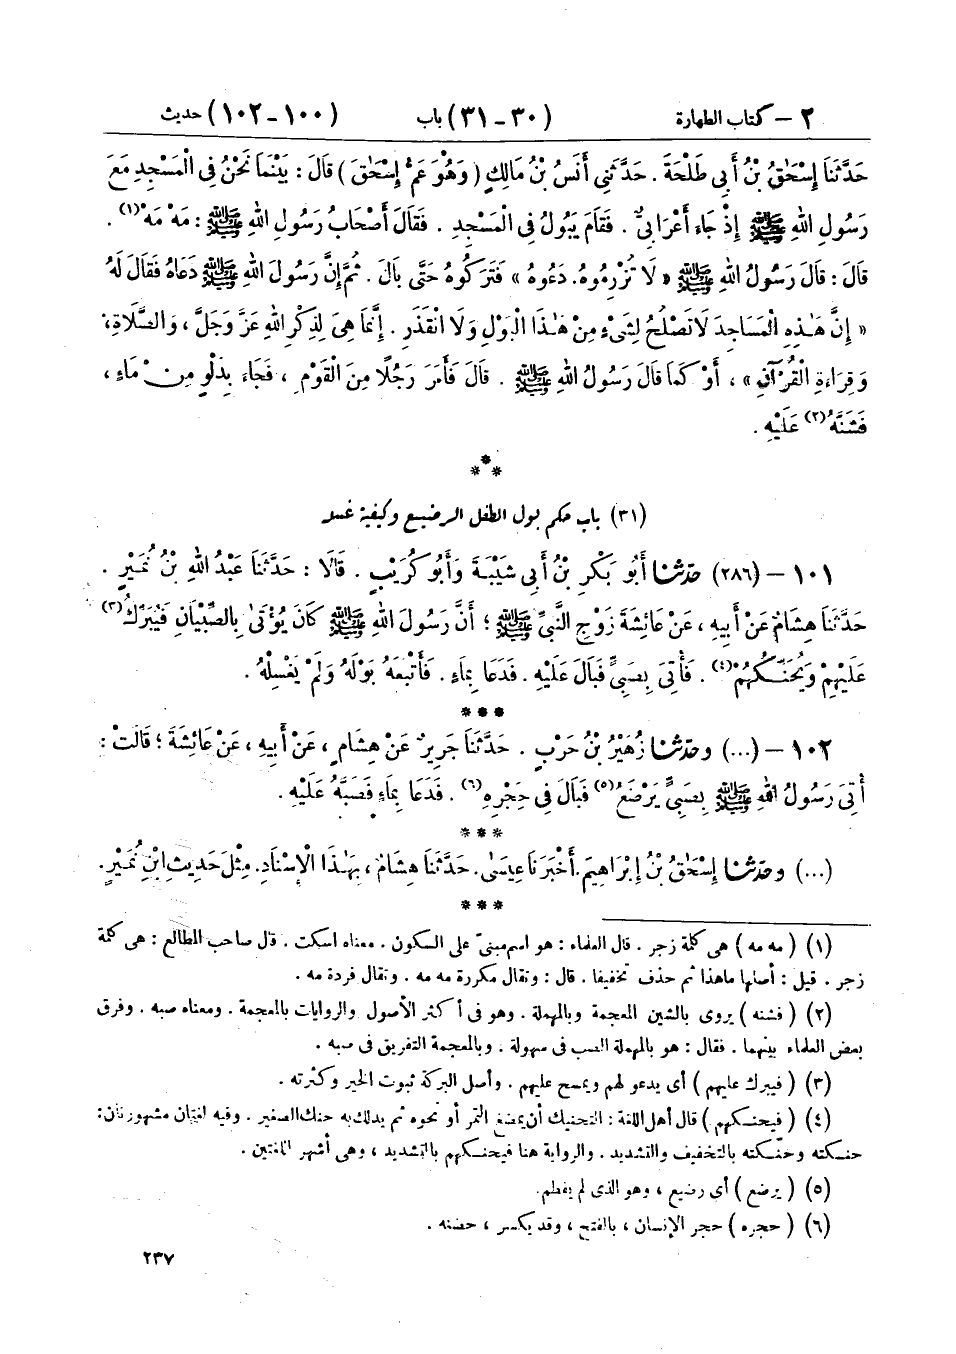 ٢ – كتاب الطهارة (٣٠ – ٣١) باب (١٠٠ – ١٠٢) حديث
حَدَّثَنَا إِسْحَٰقُ بْنُ أَبِي طَلْحَةَ . حَدَّثَنِي أَنَسُ بْنُ مَالِكٍ ( وَهُوَ عَمُّ إِسْحَٰقَ ) قَالَ : بَيْنَمَا نَحْنُ فِي الْمَسْجِدِ مَعَ
رَسُولِ اللهِ ﷺ إِذْ جَاءَ أَعْرَابِيٌّ . فَقَامَ يَبُولُ فِي الْمَسْجِدِ . فَقَالَ أَصْحَابُ رَسُولِ اللهِ ﷺ : مَهْ مَهْ(١) .
قَالَ : قَالَ رَسُولُ اللهِ ﷺ « لَا تُزْرِمُوهُ. دَعُوهُ » فَتَرَكُوهُ حَتَّى بَالَ . ثُمَّ إِنَّ رَسُولَ اللهِ ﷺ دَعَاهُ فَقَالَ لَهُ
« إِنَّ هَٰذِهِ الْمَسَاجِدَ لَا تَصْلُحُ لِشَيْءٍ مِنْ هَٰذَا الْبَوْلِ وَلَا الْقَذَرِ . إِنَّمَا هِيَ لِذِكْرِ اللهِ عَزَّ وَجَلَّ ، وَالصَّلَاةِ،
وَقِرَاءَةِ الْقُرْآنِ » ، أَوْ كَمَا قَالَ رَسُولُ اللهِ ﷺ . قَالَ فَأَمَرَ رَجُلًا مِنَ الْقَوْمِ ، فَجَاءَ بِدَلْوٍ مِنْ مَاءٍ ،
فَشَنَّهُ(٢) عَلَيْهِ .
***
(٣١) باب حكم بول الطفل الرضيع وكيفية غسله
١٠١ – (٢٨٦) حدّثنا أَبُو بَكْرِ بْنُ أَبِي شَيْبَةَ وَأَبُو كُرَيْبٍ . قَالَا : حَدَّثَنَا عَبْدُ اللهِ بْنُ نُمَيْرٍ .
حَدَّثَنَا هِشَامٌ عَنْ أَبِيهِ ، عَنْ عَائِشَةَ زَوْجِ النَّبِيِّ ﷺ ؛ أَنَّ رَسُولَ اللهِ ﷺ كَانَ يُؤْتَىٰ بِالصِّبْيَانِ فَيُبَرِّكُ(٣)
عَلَيْهِمْ وَيُحَنِّكُهُمْ(٤) . فَأُتِيَ بِصَبِيٍّ فَبَالَ عَلَيْهِ . فَدَعَا بِمَاءٍ . فَأَتْبَعَهُ بَوْلَهُ وَلَمْ يَغْسِلْهُ .
***
١٠٢ – (...) وحدّثنا زُهَيْرُ بْنُ حَرْبٍ . حَدَّثَنَا جَرِيرٌ عَنْ هِشَامٍ ، عَنْ أَبِيهِ ، عَنْ عَائِشَةَ ؛ قَالَتْ :
أُتِيَ رَسُولُ اللهِ ﷺ بِصَبِيٍّ يَرْضَعُ(٥) فَبَالَ فِي حِجْرِهِ(٦) . فَدَعَا بِمَاءٍ فَصَبَّهُ عَلَيْهِ .
***
(...) وحدّثنا إِسْحَٰقُ بْنُ إِبْرَاهِيمَ . أَخْبَرَنَا عِيسَىٰ. حَدَّثَنَا هِشَامٌ ، بِهَٰذَا الْإِسْنَادِ. مِثْلَ حَدِيثِ ابْنِ نُمَيْرٍ.
***
(١) ( مه مه ) هى كلمة زجر . قال العلماء : هو اسم مبنىّ على السكون . معناه اسكت . قال صاحب المطالع : هى كلمة
زجر . قيل : أصلها ماهذا ثم حذف تخفيفا . قال : وتقال مكررة مه مه . وتقال فردة مه .
(٢) ( فشنه ) يروى بالشين المعجمة وبالمهملة . وهو فى أكثر الأصول والروايات بالمعجمة . ومعناه صبه . وفرق
بعض العلماء بينهما . فقال : هو بالمهملة الصب فى سهولة . وبالمعجمة التفريق فى صبه .
(٣) ( فيبرك عليهم ) أى يدعو لهم ويمسح عليهم . وأصل البركة ثبوت الخير وكثرته .
(٤) ( فيحنكهم ) قال أهل اللغة : التحنيك أن يمضغ التمر أو نحوه ثم يدلك به حنك الصغير . وفيه لغتان مشهورتان:
حنكته وحنّكته بالتخفيف والتشديد . والرواية هنا فيحنكهم بالتشديد ، وهى أشهر اللغتين .
(٥) ( يرضع ) أى رضيع ، وهو الذى لم يفطم.
(٦) ( حجره ) حجر الإنسان ، بالفتح ، وقد يكسر ، حضنه .
٢٣٧